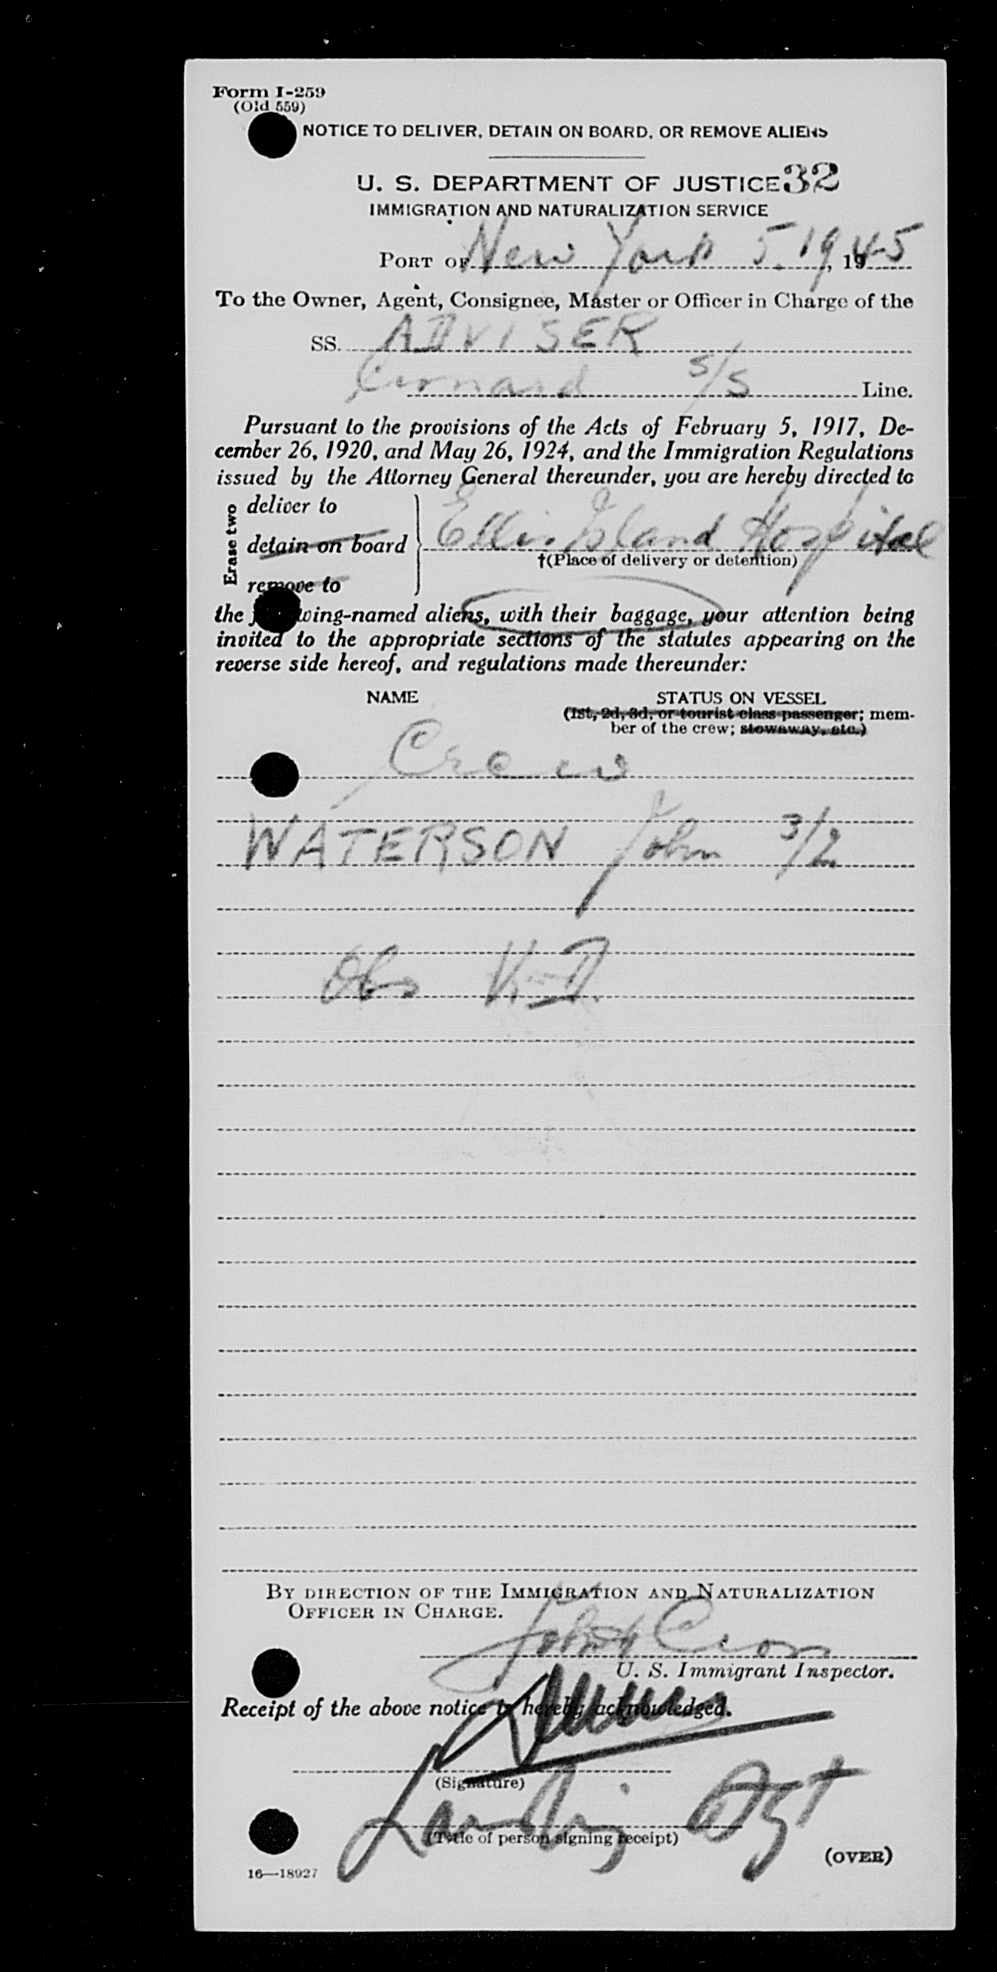 Form I-259
(Old 559)
NOTICE TO DELIVER, DETAIN ON BOARD, OR REMOVE ALIENS
U. S. DEPARTMENT OF JUSTICE 32
IMMIGRATION AND NATURALIZATION SERVICE
PORT OF New York 5.19, 1945
To the Owner, Agent, Consignee, Master or Officer in Charge of the
SS. ADVISER
Cunard S/S Line.
Pursuant to the provisions of the Acts of February 5, 1917, De-
cember 26, 1920, and May 26, 1924, and the Immigration Regulations
issued by the Attorney General thereunder, you are hereby directed to
Erase two
deliver to
detain on board Ellis Island Hospital
†(Place of delivery or detention)
remove to
the following-named aliens, with their baggage, your attention being
invited to the appropriate sections of the statutes appearing on the
reverse side hereof, and regulations made thereunder:
NAME STATUS ON VESSEL
(1st, 2d, 3d, or tourist class passenger; mem-
ber of the crew; stowaway, etc.)
Crew
WATERSON John 3/2
Obs
BY DIRECTION OF THE IMMIGRATION AND NATURALIZATION
OFFICER IN CHARGE.
U. S. Immigrant Inspector.
Receipt of the above notice is hereby acknowledged.
(Signature)
Landing Agt
(Title of person signing receipt)
(OVER)
16—18927